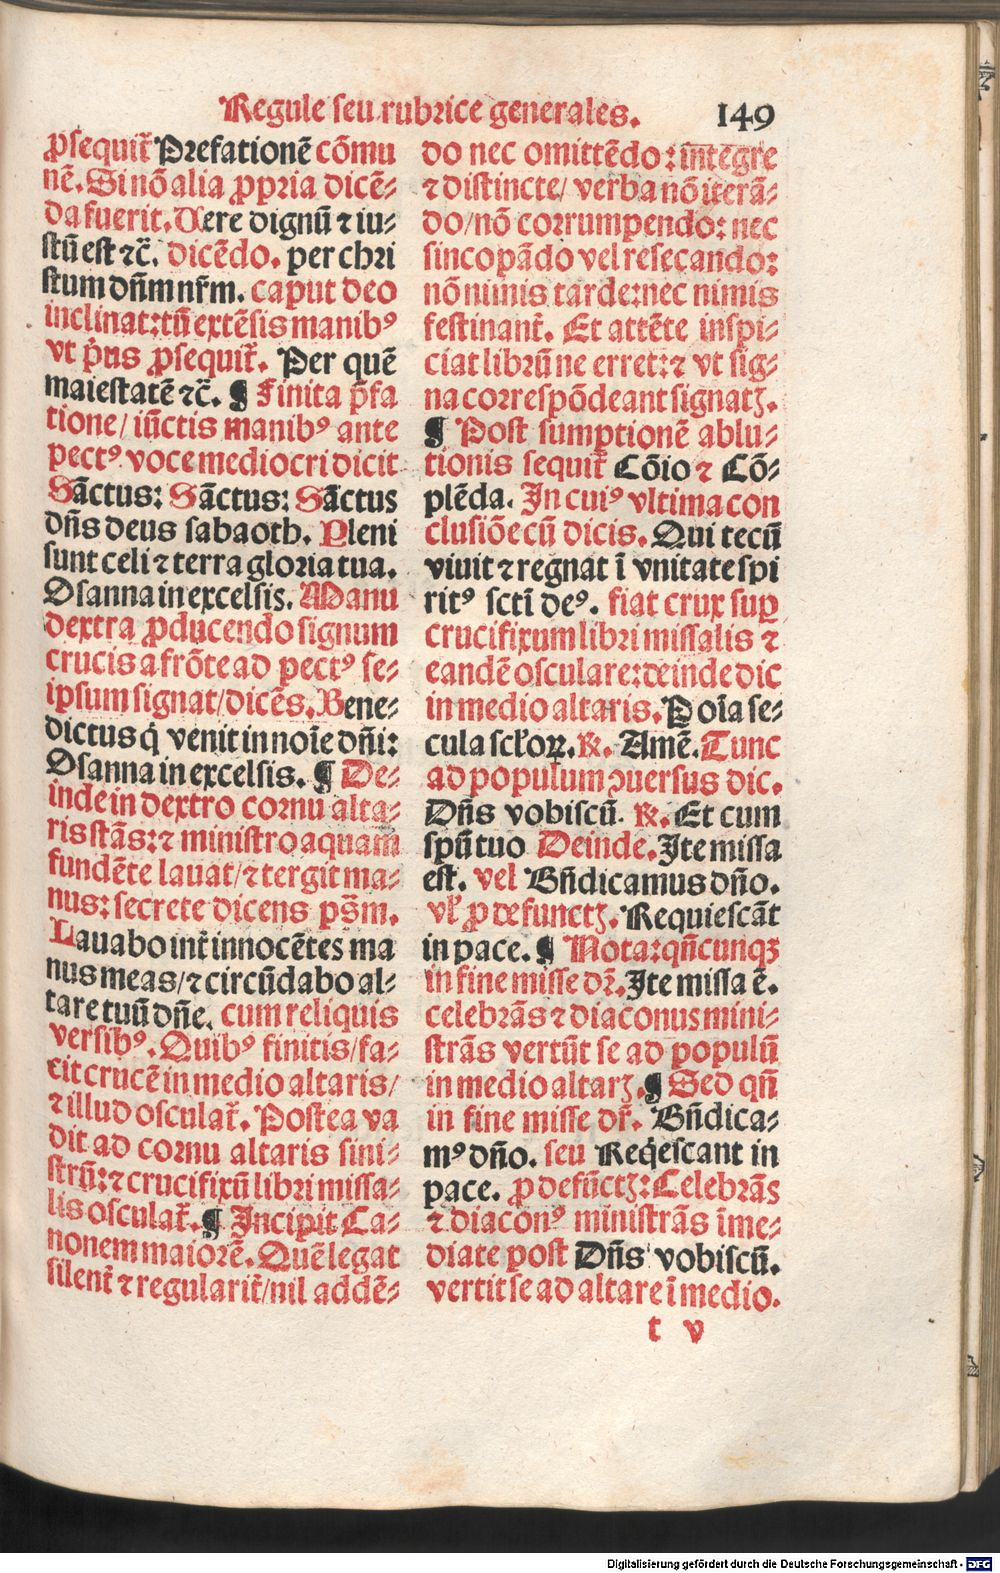 Regule seu rubrice generales. 149
ꝓsequit̃ Prefationẽ cõmu
nẽ. Si nõ alia ꝓpria dicẽ⸗
da fuerit. Vere dignũ ⁊ iu⸗
stũ est ⁊c̃. dicẽdo. per chri
stum dñm nr̃m. caput deo
inclinat: tũ extẽsis manibꝰ
vt p̃us ꝓsequit̃. Per quẽ
maiestatẽ ⁊c̃. ¶ Finita p̃fa
tione/ iũctis manibꝰ ante
pectꝰ voce mediocri dicit
Sãctus: Sãctus: Sãctus
dñs deus sabaoth. Pleni
sunt celi ⁊ terra gloria tua.
Osanna in excelsis. Manu
dextra ꝓducendo signum
crucis a frõte ad pectꝰ se⸗
ipsum signat/ dicẽs. Bene⸗
dictus q̃ venit in noĩe dñi:
Osanna in excelsis. ¶ De⸗
inde in dextro cornu alta⸗
ris stãs: ⁊ ministro aquam
fundẽte lauat/ ⁊ tergit ma⸗
nus: secrete dicens ps̃m.
Lauabo int̃ innocẽtes ma
nus meas/ ⁊ circũdabo al⸗
tare tuũ dñe. cum reliquis
versibꝰ. Quibꝰ finitis/ fa⸗
cit crucẽ in medio altaris/
⁊ illud osculat̃. Postea va
dit ad cornu altaris sini⸗
strũ: ⁊ crucifixũ libri missa⸗
lis osculat̃. ¶ Incipit Ca⸗
nonem maiorẽ. Quẽ legat
silent̃ ⁊ regularit̃/ nil addẽ⸗
do nec omittẽdo: integre
⁊ distincte/ verba nõ iterã⸗
do/ nõ corrumpendo: nec
sincopãdo vel resecando:
nõ nimis tarde: nec nimis
festinant̃. Et attẽte inspi⸗
ciat librũ ne erret: ⁊ vt sig⸗
na correspõdeant signatꝫ.
¶ Post sumptionẽ ablu⸗
tionis sequit̃ Cõio ⁊ Cõ⸗
plẽda. In cuiꝰ vltima con
clusiõe cũ dicis. Qui tecũ
viuit ⁊ regnat ĩ vnitate spi
ritꝰ sctĩ deꝰ. fiat crux suꝑ
crucifixum libri missalis ⁊
eandẽ osculare: deinde dic
in medio altaris. P oĩa se⸗
cula scl̃oꝝ. ℟. Amẽ. Tunc
ad populum ꝯuersus dic.
Dñs vobiscũ. ℟. Et cum
spũ tuo Deinde. Ite missa
est. vel Bñdicamus dño.
vl̃ ꝓ defunctꝫ. Requiescãt
in pace. ¶ Nota: qñcunqꝫ
in fine misse dr̃. Ite missa ẽ.
celebrãs ⁊ diaconus mini⸗
strãs vertũt se ad populũ
in medio altarꝫ. ¶ Sed qñ
in fine misse dr̃. Bñdica⸗
mꝰ dño. seu Req̃escant in
pace. ꝓ defũctꝫ: Celebrãs
⁊ diaconꝰ ministrãs ĩme⸗
diate post Dñs vobiscũ.
vertit se ad altare ĩ medio.
t v
Digitalisierung gefördert durch die Deutsche Forschungsgemeinschaft - DFG